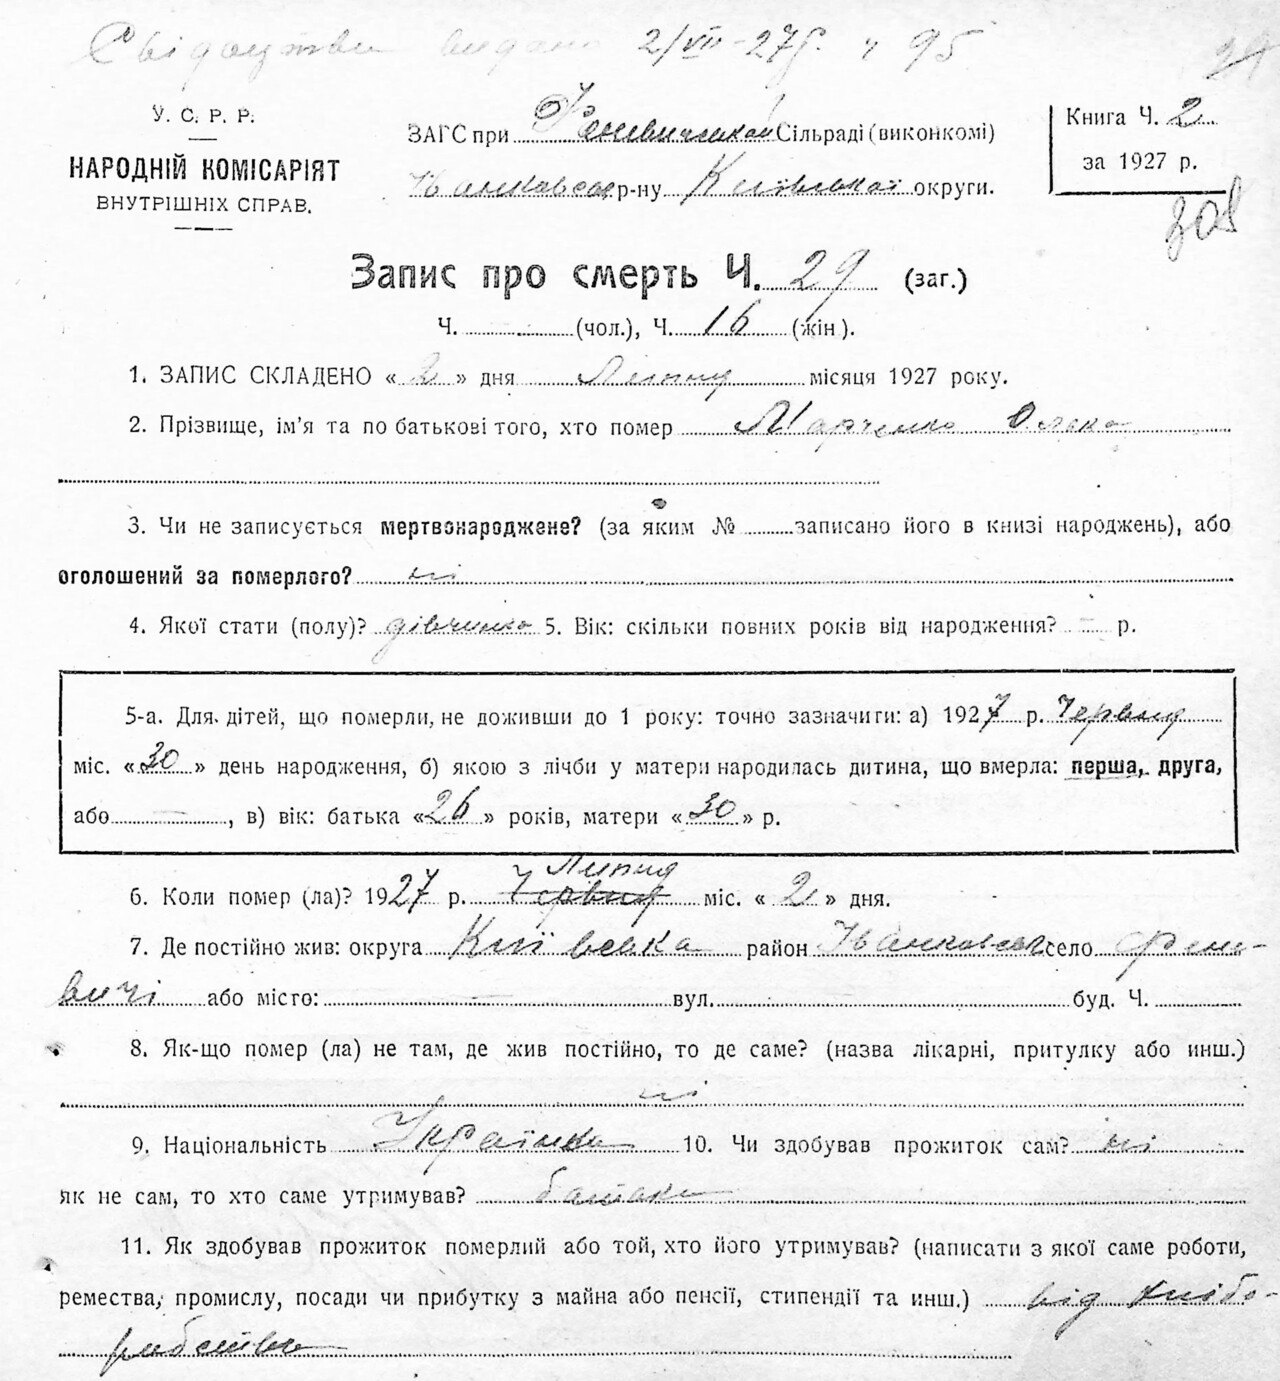 Свідоцтво видано 2/VII-27р. ч 95
29
У. С. Р. Р.
НАРОДНІЙ КОМІСАРІЯТ
ВНУТРІШНІХ СПРАВ.
ЗАГС при Феневичській Сільраді (виконкомі)
Іванківськ р-ну Київської округи.
Книга Ч. 2
за 1927 р.
308
Запис про смерть Ч. 29 (заг.)
Ч. (чол.), Ч. 16 (жін).
1. ЗАПИС СКЛАДЕНО «2» дня Липня місяця 1927 року.
2. Прізвище, ім'я та по батькові того, хто помер Марченко Олена
3. Чи не записується мертвонароджене? (за яким № записано його в книзі народжень), або
оголошений за померлого? ні
4. Якої стати (полу)? дівчинка 5. Вік: скільки повних років від народження? – р.
5-а. Для дітей, що померли, не доживши до 1 року: точно зазначити: а) 1927 р. Червня
міс. «30» день народження, б) якою з лічби у матери народилась дитина, що вмерла: перша, друга,
або — , в) вік: батька «26» років, матери «30» р.
Липня
6. Коли помер (ла)? 1927 р. Червня міс. «2» дня.
7. Де постійно жив: округа Київська район Іванковськ село Фене-
вичі або місто: — вул. буд. Ч.
8. Як-що помер (ла) не там, де жив постійно, то де саме? (назва лікарні, притулку або инш.)
ні
9. Національність Українка 10. Чи здобував прожиток сам? ні
як не сам, то хто саме утримував? батьки
11. Як здобував прожиток померлий або той, хто його утримував? (написати з якої саме роботи,
ремества, промислу, посади чи прибутку з майна або пенсії, стипендії та инш.) від хлібо-
робства